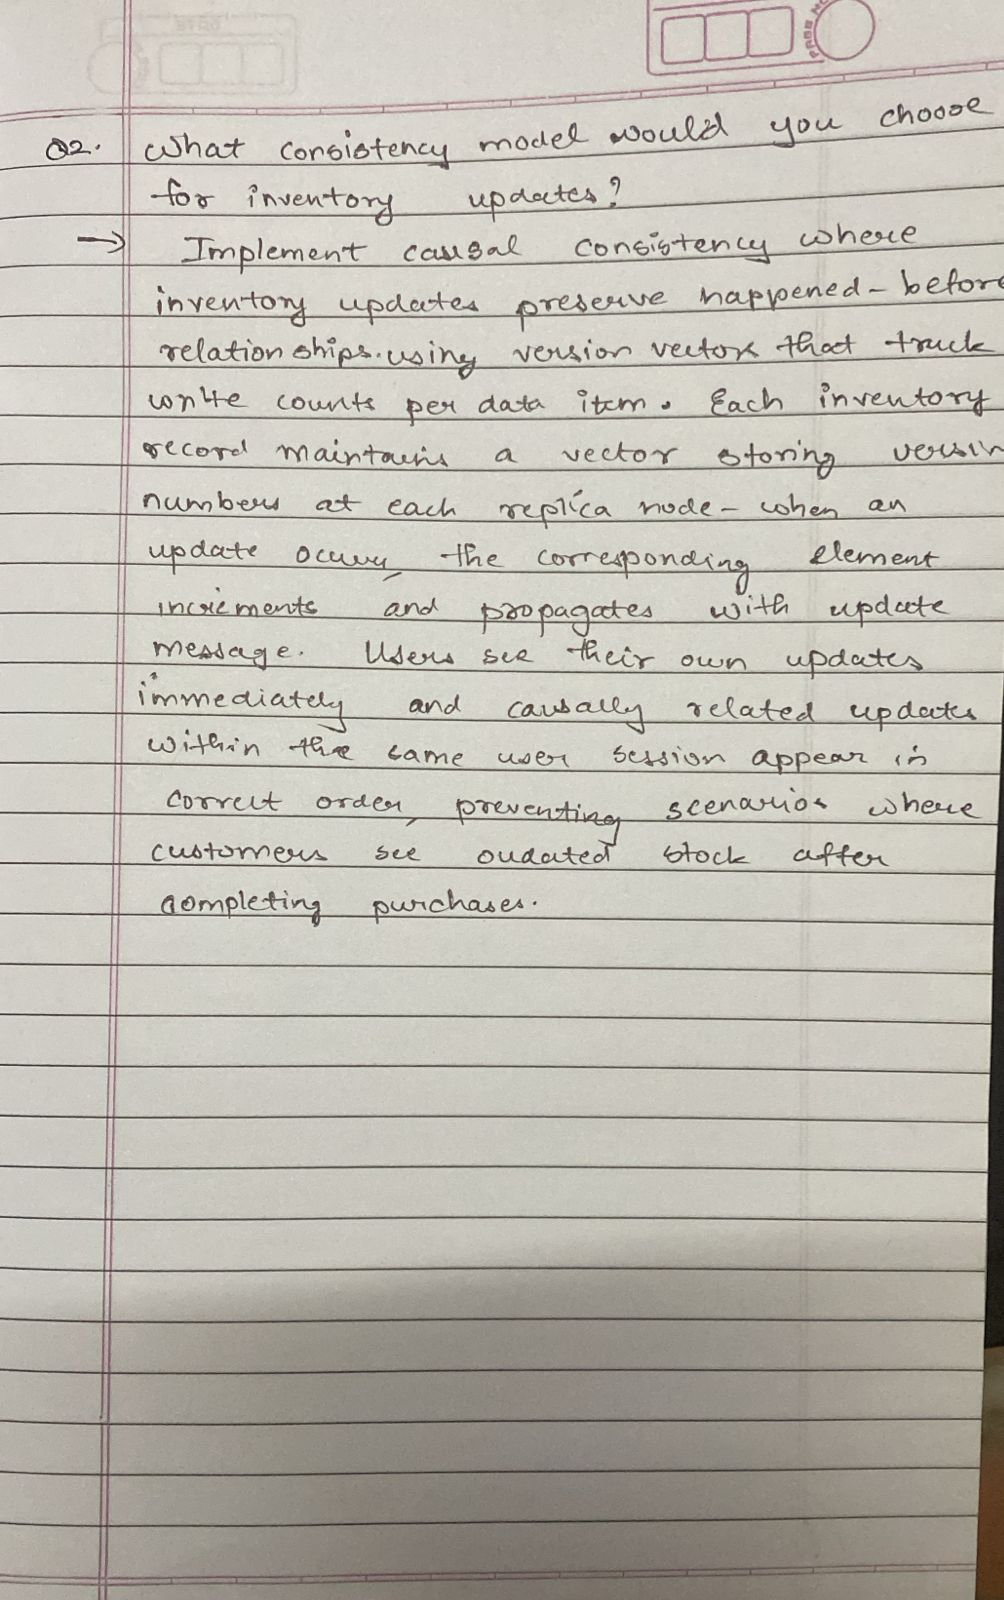 Q2. What consistency model would you choose
for inventory updates?
→ Implement causal consistency where
inventory updates preserve happened - before
relation ships. using version vectors that track
write counts per data item. Each inventory
record maintains a vector storing versin
numbers at each replica node - when an
update occurs, the corresponding element
increments and propagates with update
message. Users see their own updates
immediately and causally related updates
within the same user session appear in
correct order, preventing scenarios where
customers see oudated stock after
completing purchases.